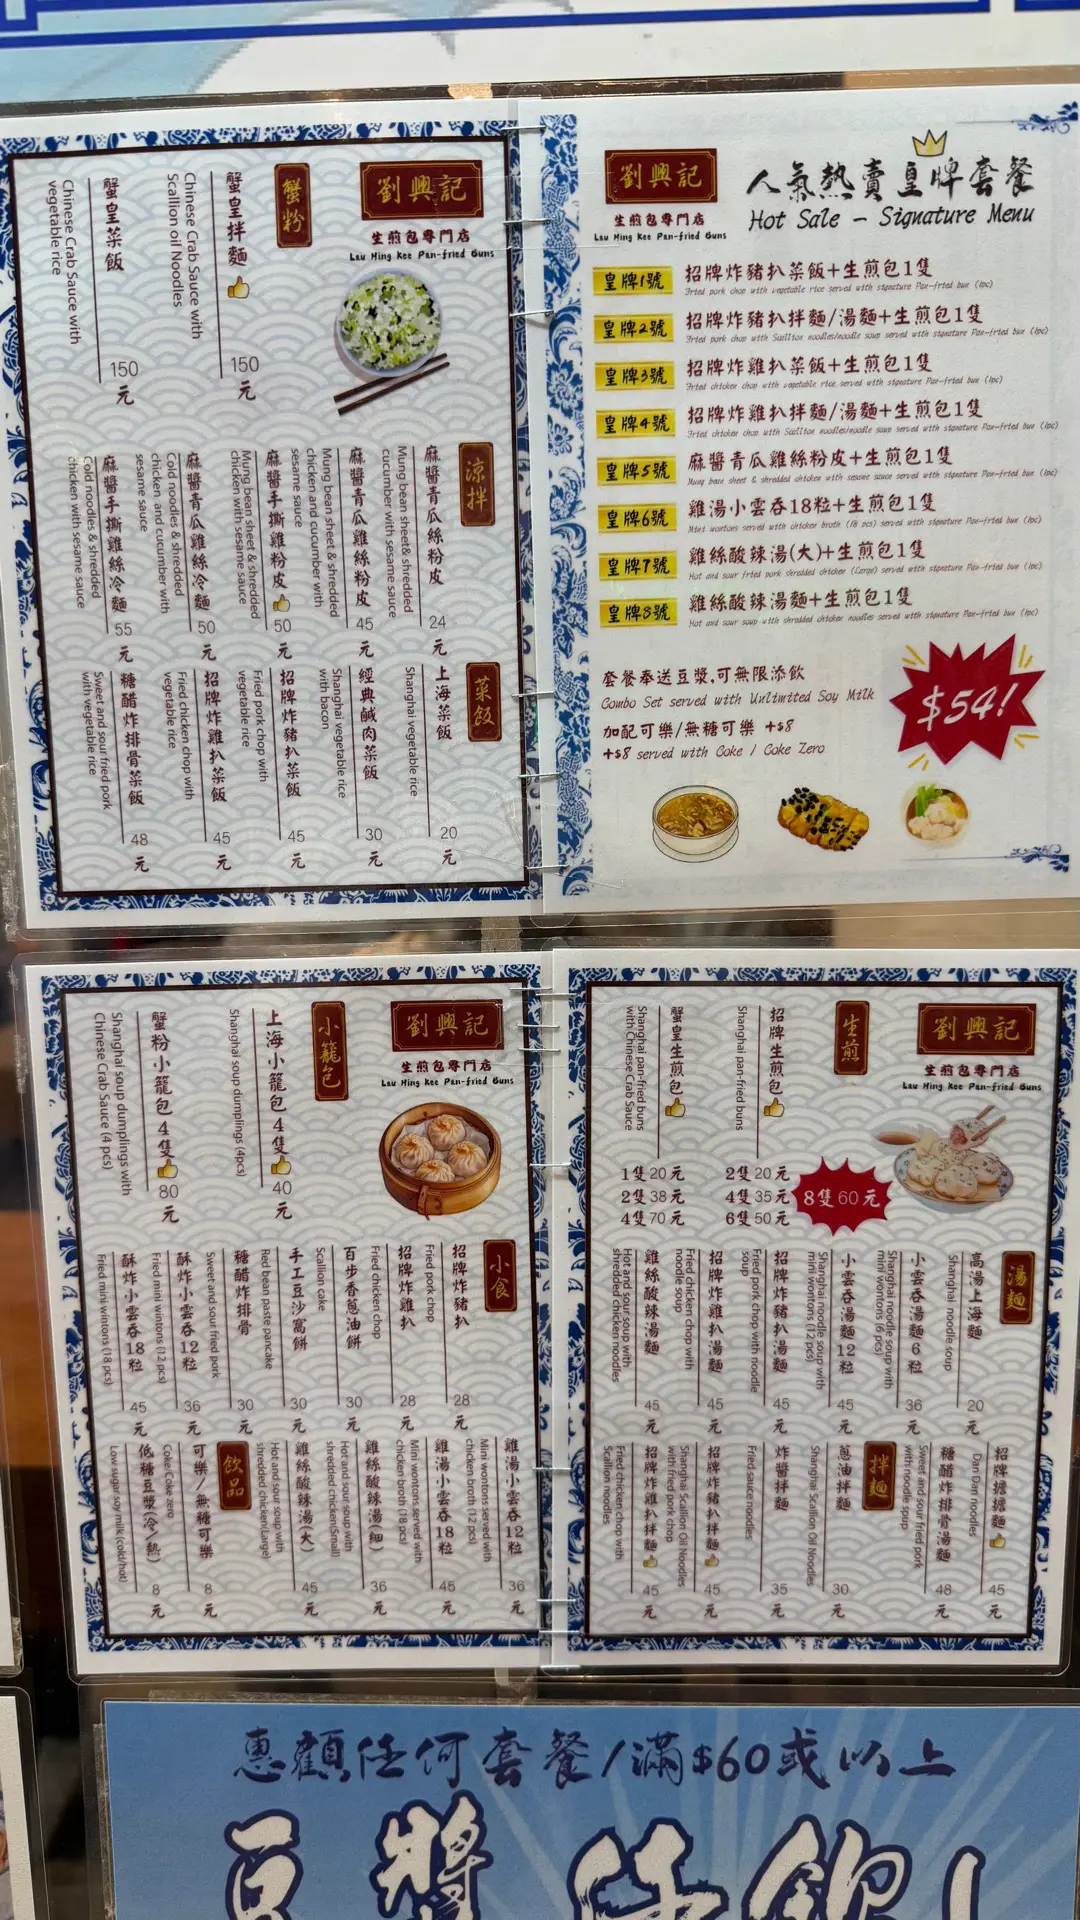 劉興記
生煎包專門店
Lau Hing Kee Pan-fried Buns
蟹粉
蟹皇拌麵
Chinese Crab Sauce with
Scallion oil Noodles
150元
蟹皇菜飯
Chinese Crab Sauce with
vegetable rice
150元
涼拌
麻醬青瓜絲粉皮
Mung bean sheet& shredded
cucumber with sesame sauce
24元
麻醬青瓜雞絲粉皮
Mung bean sheet & shredded
chicken and cucumber with
sesame sauce
45元
麻醬手撕雞粉皮
Mung bean sheet & shredded
chicken with sesame sauce
50元
麻醬青瓜雞絲冷麵
Cold noodles & shredded
chicken and cucumber with
sesame sauce
50元
麻醬手撕雞絲冷麵
Cold noodles & shredded
chicken with sesame sauce
55元
菜飯
上海菜飯
Shanghai vegetable rice
20元
經典鹹肉菜飯
Shanghai vegetable rice
with bacon
30元
招牌炸豬扒菜飯
Fried pork chop with
vegetable rice
45元
招牌炸雞扒菜飯
Fried chicken chop with
vegetable rice
45元
糖醋炸排骨菜飯
Sweet and sour fried pork
with vegetable rice
48元
劉興記
生煎包專門店
Lau Hing Kee Pan-fried Buns
人氣熱賣皇牌套餐
Hot Sale - Signature Menu
皇牌1號
招牌炸豬扒菜飯+生煎包1隻
Fried pork chop with vegetable rice served with signature Pan-fried bun (1pc)
皇牌2號
招牌炸豬扒拌麵/湯麵+生煎包1隻
Fried pork chop with Scallion noodles/noodle soup served with signature Pan-fried bun (1pc)
皇牌3號
招牌炸雞扒菜飯+生煎包1隻
Fried chicken chop with vegetable rice served with signature Pan-fried bun (1pc)
皇牌4號
招牌炸雞扒拌麵/湯麵+生煎包1隻
Fried chicken chop with Scallion noodles/noodle soup served with signature Pan-fried bun (1pc)
皇牌5號
麻醬青瓜雞絲粉皮+生煎包1隻
Mung bean sheet & shredded chicken with sesame sauce served with signature Pan-fried bun (1pc)
皇牌6號
雞湯小雲吞18粒+生煎包1隻
Mini wontons served with chicken broth (18 pcs) served with signature Pan-fried bun (1pc)
皇牌7號
雞絲酸辣湯(大)+生煎包1隻
Hot and sour fried pork shredded chicken (Large) served with signature Pan-fried bun (1pc)
皇牌8號
雞絲酸辣湯麵+生煎包1隻
Hot and sour soup with shredded chicken noodles served with signature Pan-fried bun (1pc)
套餐奉送豆漿,可無限添飲
Combo Set served with Unlimited Soy Milk
加配可樂/無糖可樂 +$8
+$8 served with Coke / Coke Zero
$54!
劉興記
生煎包專門店
Lau Hing Kee Pan-fried Buns
小籠包
上海小籠包4隻
Shanghai soup dumplings (4pcs)
40元
蟹粉小籠包4隻
Shanghai soup dumplings with
Chinese Crab Sauce (4 pcs)
80元
小食
招牌炸豬扒
Fried pork chop
28元
招牌炸雞扒
Fried chicken chop
28元
百步香蔥油餅
Scallion cake
30元
手工豆沙窩餅
Red bean paste pancake
30元
糖醋炸排骨
Sweet and sour fried pork
30元
酥炸小雲吞12粒
Fried mini wintons (12 pcs)
36元
酥炸小雲吞18粒
Fried mini wintons (18 pcs)
45元
雞湯小雲吞12粒
Mini wontons served with
chicken broth (12 pcs)
36元
雞湯小雲吞18粒
Mini wontons served with
chicken broth (18 pcs)
45元
雞絲酸辣湯(細)
Hot and sour soup with
shredded chicken(Small)
36元
雞絲酸辣湯(大)
Hot and sour soup with
shredded chicken(Large)
45元
飲品
可樂/無糖可樂
Coke/Coke zero
8元
低糖豆漿(冷/熱)
Low sugar soy milk (cold/hot)
8元
劉興記
生煎包專門店
Lau Hing Kee Pan-fried Buns
生煎
招牌生煎包
Shanghai pan-fried buns
2隻20元
4隻35元
6隻50元
8隻60元
蟹皇生煎包
Shanghai pan-fried buns
with Chinese Crab Sauce
1隻20元
2隻38元
4隻70元
湯麵
高湯上海麵
Shanghai noodle soup
20元
小雲吞湯麵6粒
Shanghai noodle soup with
mini wontons (6 pcs)
36元
小雲吞湯麵12粒
Shanghai noodle soup with
mini wontons (12 pcs)
45元
招牌炸豬扒湯麵
Fried pork chop with noodle
soup
45元
招牌炸雞扒湯麵
Fried chicken chop with
noodle soup
45元
雞絲酸辣湯麵
Hot and sour soup with
shredded chicken noodles
45元
招牌擔擔麵
Dan Dan noodles
45元
糖醋炸排骨湯麵
Sweet and sour fried pork
with noodle spup
48元
拌麵
蔥油拌麵
Shanghai Scallion Oil Noodles
30元
炸醬拌麵
Fried sauce noodles
35元
招牌炸豬扒拌麵
Shanghai Scallion Oil Noodles
with fried pork chop
45元
招牌炸雞扒拌麵
Fried chicken chop with
Scallion noodles
45元
惠顧任何套餐/滿$60或以上
豆漿任飲!